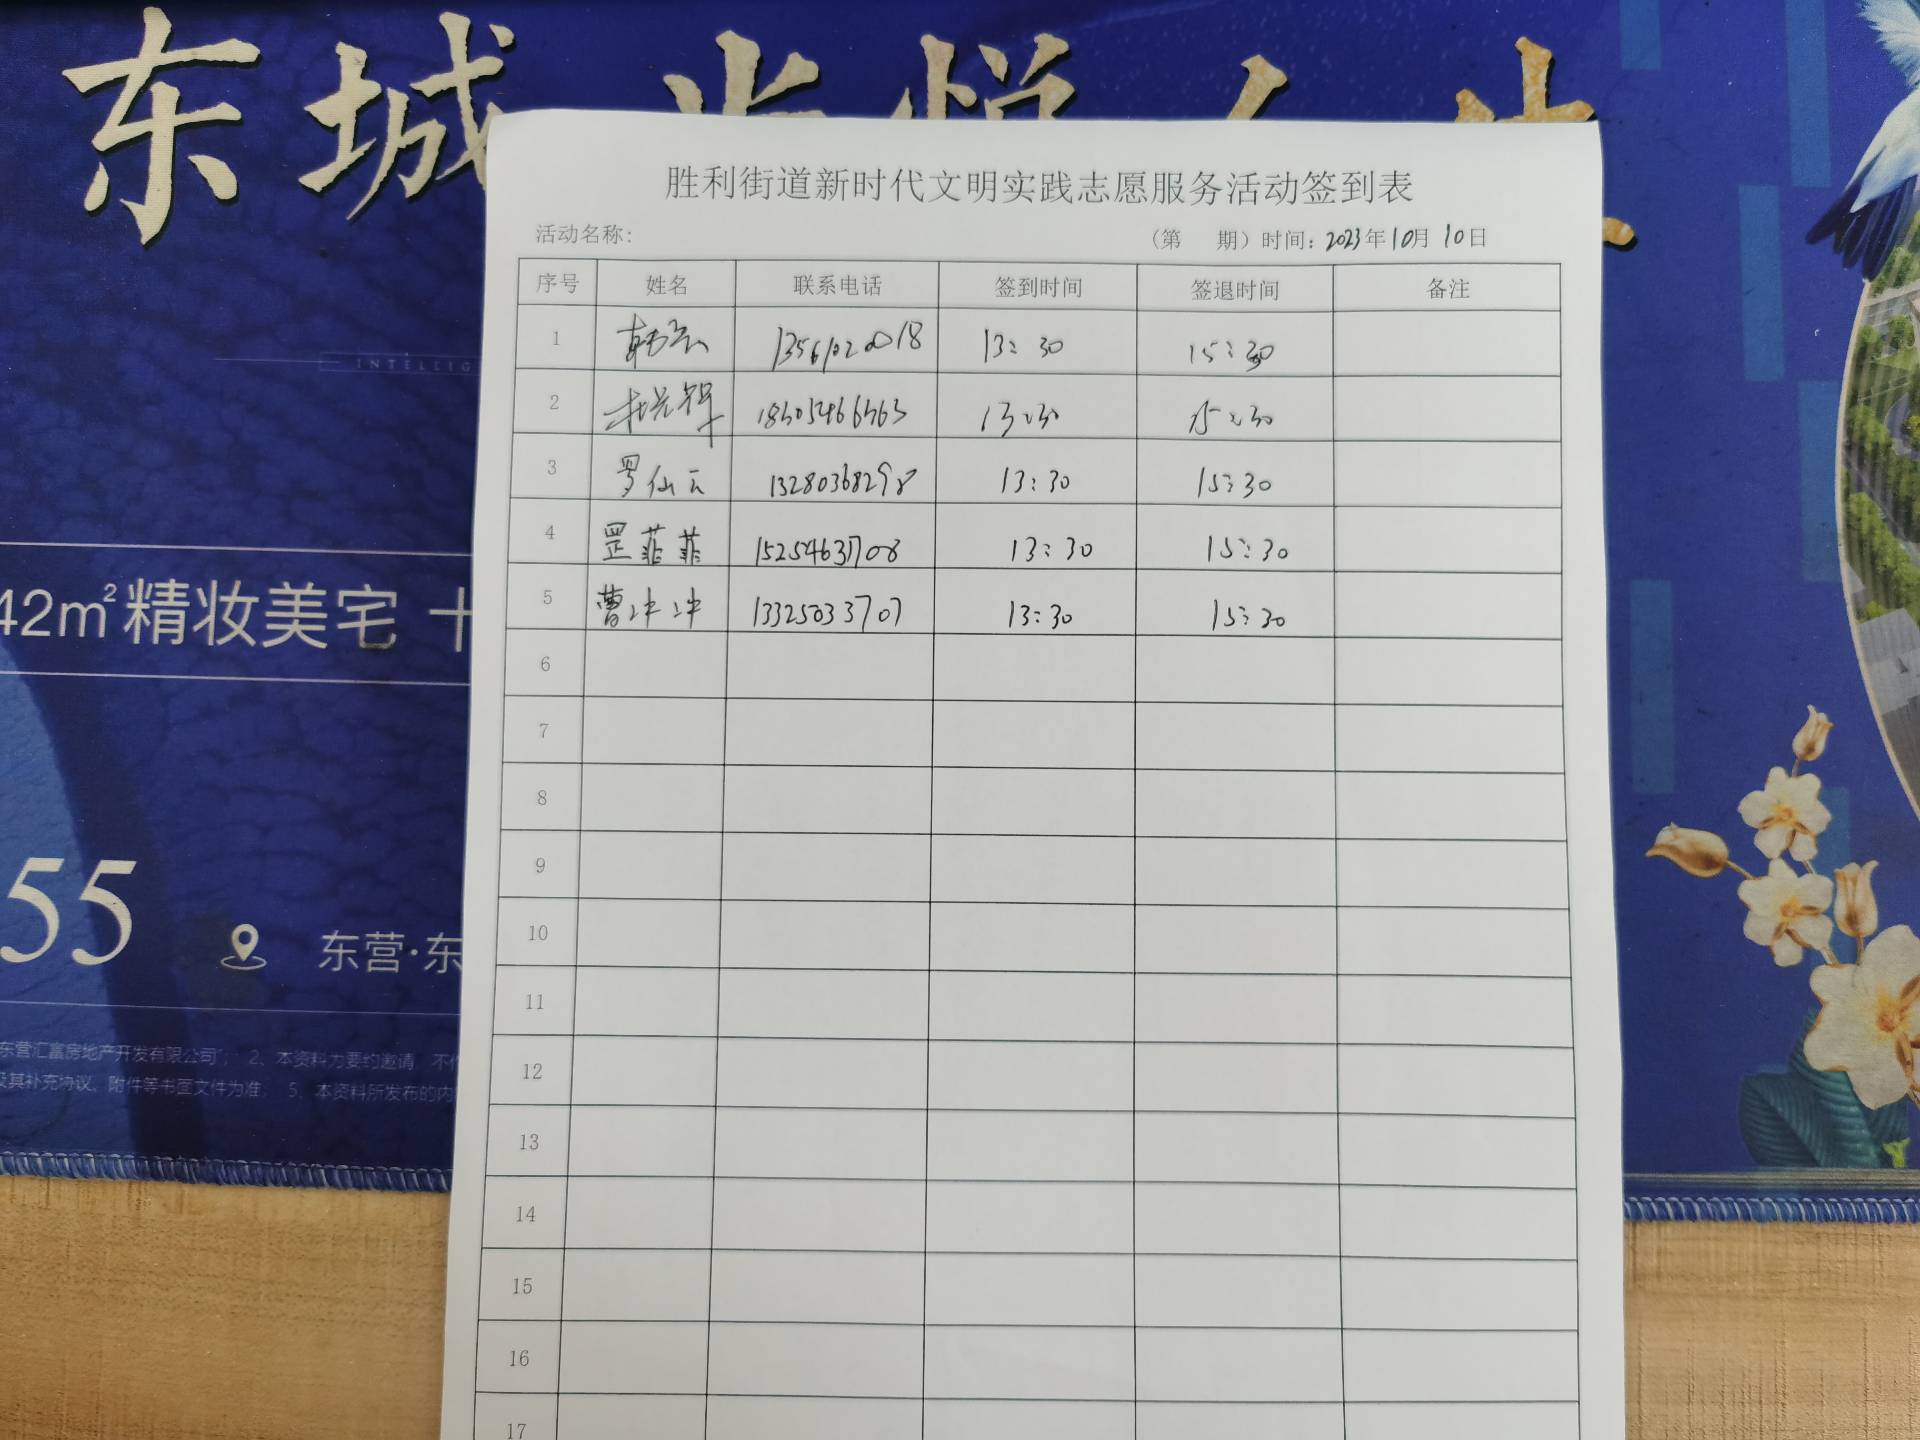 东城
INTELLIG
42m²精妆美宅 十
55
东营·东
东营汇富房地产开发有限公司"; 2、本资料为要约邀请,不作
及其补充协议、附件等书面文件为准。 5、本资料所发布的内
胜利街道新时代文明实践志愿服务活动签到表
活动名称: (第 期)时间:2023年10月10日
序号 姓名 联系电话 签到时间 签退时间 备注
1 13:30 15:30
2 13:30 15:30
3 罗仙云 13280368298 13:30 15:30
4 罡菲菲 15254631708 13:30 15:30
5 曹冲冲 13325033707 13:30 15:30
6
7
8
9
10
11
12
13
14
15
16
17